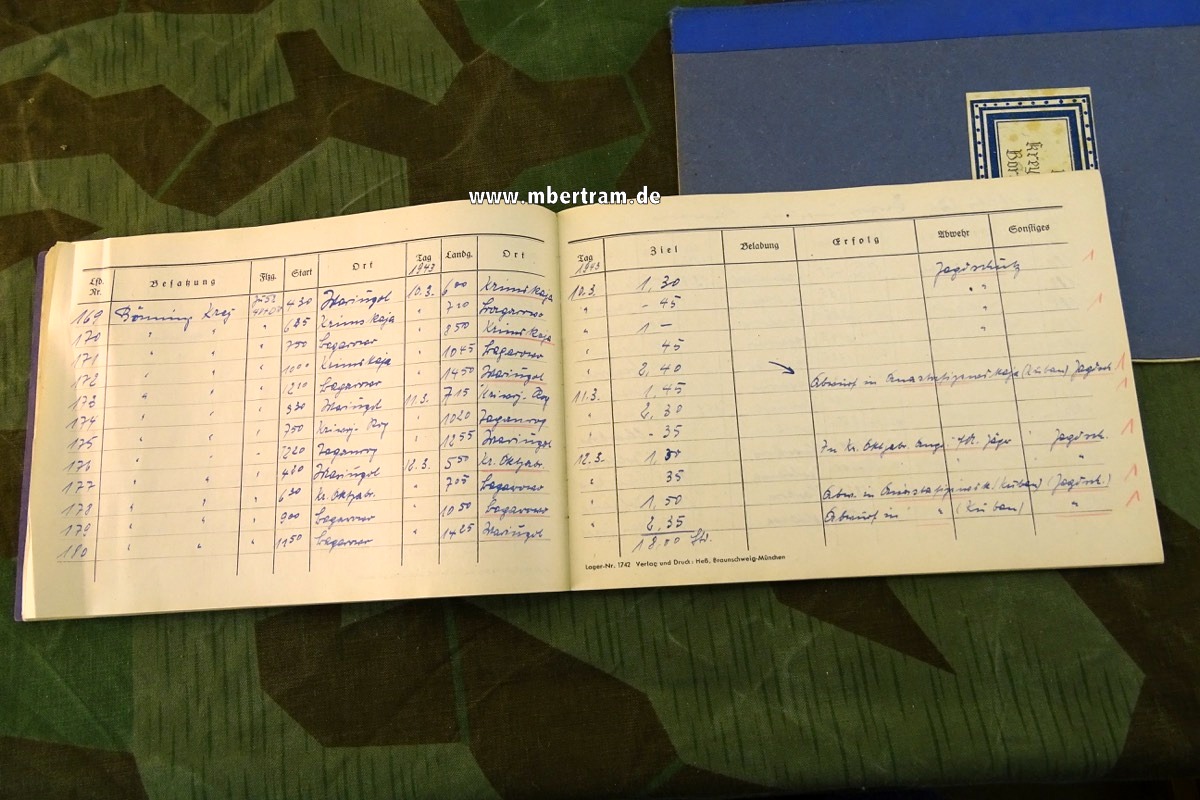 www.mbertram.de
Krey
Lfd. Nr. Besatzung Flzg. Start Ort Tag 1943 Landg. Ort Tag 1943 Ziel Beladung Erfolg Abwehr Sonstiges
169 Bönning Krey Ju52 4 30 Mariupol 10.3. 6 00 Krimskaja 10.3. 1,30 Jagdschutz
170 " " " 6 35 Krimskaja " 7 20 Bagerowo " - 45 " "
171 " " " 7 50 Bagerowo " 8 50 Krimskaja " 1 - "
172 " " " 10 00 Krimskaja " 10 45 Bagerowo " 45
173 " " " 12 10 Bagerowo " 14 50 Mariupol " 2,40
174 " " " 5 30 Mariupol 11.3. 7 15 Kriwoj-Rog 11.3. 1,45 Abwurf in (Kuban) Jagdsch.
175 " " " 7 50 Kriwoj-Rog " 10 20 Taganrog " 2,30
176 " " " 12 20 Taganrog " 12 55 Mariupol " - 35
177 " " " 4 20 Mariupol 12.3. 5 50 Kr. Oktjabr. 12.3. 1,30 In Kr. Oktjabr. Jäger Jagdsch.
178 " " " 6 30 Kr. Oktjabr. " 7 05 Bagerowo " 35 "
179 " " " 9 00 Bagerowo " 10 50 Bagerowo " 1,50 Abw. in (Kuban) (Jagdsch.)
180 " " " 11 50 Bagerowo " 14 25 Mariupol " 2,35 Abwurf in " (Kuban) "
18,00 Std.
Lager-Nr. 1742 Verlag und Druck: Heß, Braunschweig-München